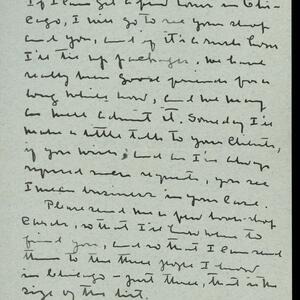 If I can get a few hours in Chi-
cago, I will go to see your shop
and you, and if it's a rush hour
I'll tie up packages. We have
really been good friends for a
long while now, and we may
as well admit it. Some day I'll
make a little talk to your clients,
if you wish; and as I've always
refused such requests, you see
I mean business in your case.
Please send me a few book-shop
cards, so that I'll know where to
find you, and so that I can send
them to the three people I know
in Chicago - just three, that is the
size of the list.